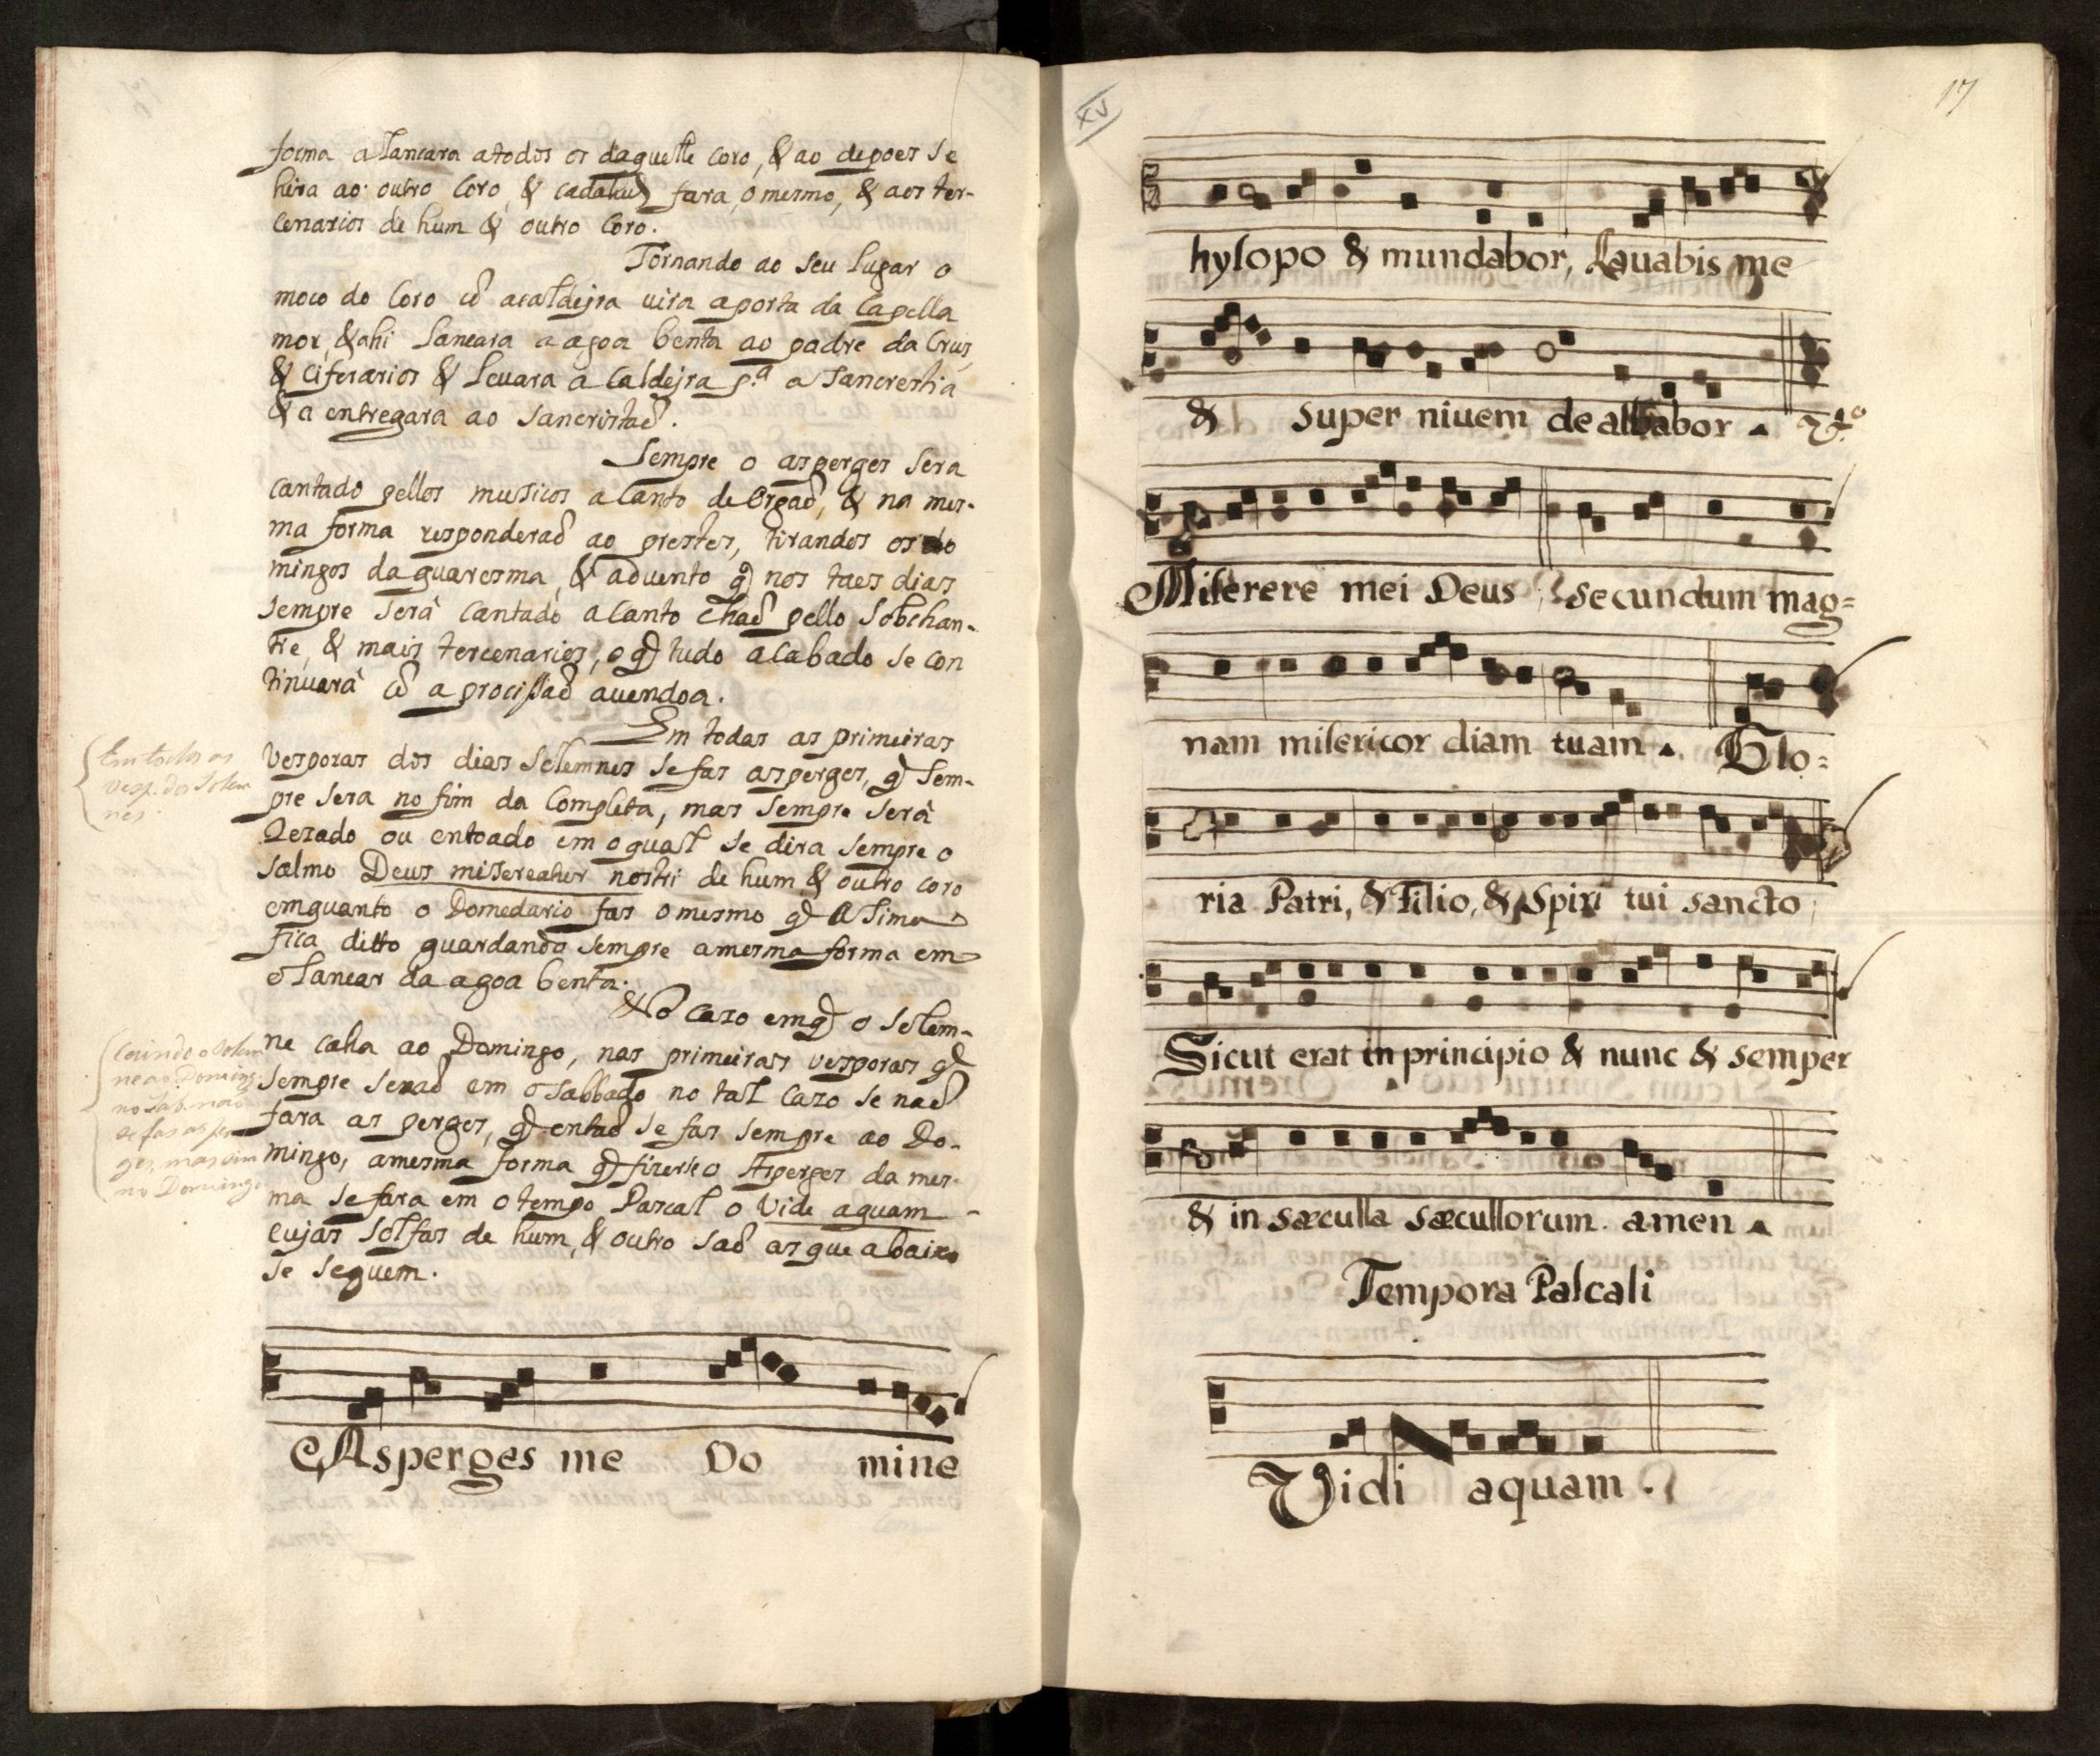 forma a lancara a todos os daquelle coro, & ao depoes se
hira ao outro coro, & cadahu fara o mesmo, & aos ter-
cenarios de hum & outro coro.
Tornando ao seu lugar o
moco do coro cõ a caldejra uira a porta da capella
mor, & ahi lancara a agoa benta ao padre da Crus,
& ciferarios & leuara a caldejra p.ª a sancrestia
& a entregara ao sancristaõ.
Sempre o asperges sera
cantado pellos musicos a canto de Orgaõ, & na mes-
ma forma responderaõ ao prestes, tirandos os do
mingos da quaresma, & aduento q̃ nos taes dias
sempre serâ cantado a canto chaõ pello sobchan-
tre, & mais tercenarios, o q̃ tudo acabado se con
tinuarâ cõ a procissaõ auendoa.
Em todas as primeiras
vesporas dos dias solemnes se fas asperges, q̃ sem-
pre sera no fim da completa, mas sempre serâ
Rezado ou entoado em o qual se dira sempre o
salmo Deus misereatur nostri de hum & outro coro
emquanto o Domedario fas o mesmo q̃ asima
fica ditto guardando sempre a mesma forma em
o lancar da agoa benta.
& No cazo em q̃ o solem-
ne caha ao Domingo, nas primeiras vesporas q̃
sempre seraõ em o sabbado no tal cazo se naõ
fara asperges, q̃ entaõ se fas sempre ao Do-
mingo, a mesma forma q̃ fizer o Asperges da mes-
ma se fara em o tempo Pascal o Vide aquam
cujas solfas de hum, & outro saõ as que abaixo
se seguem.
Em todas as
vesp. dos solem
nes
Caindo o solem
ne ao Doming.
no sab. naõ
se fas asper
ges, mas sim
no Domingo
Asperges me Do mine
XV
17
hysopo & mundabor, Lauabis me
& super niuem dealbabor V.º
Miserere mei Deus secundum mag=
nam misericordiam tuam. Glo=
ria Patri, & Filio, & Spiritui sancto
Sicut erat in principio & nunc & semper
& in sæculla sæcullorum. amen
Tempora Pascali
Vidi aquam.